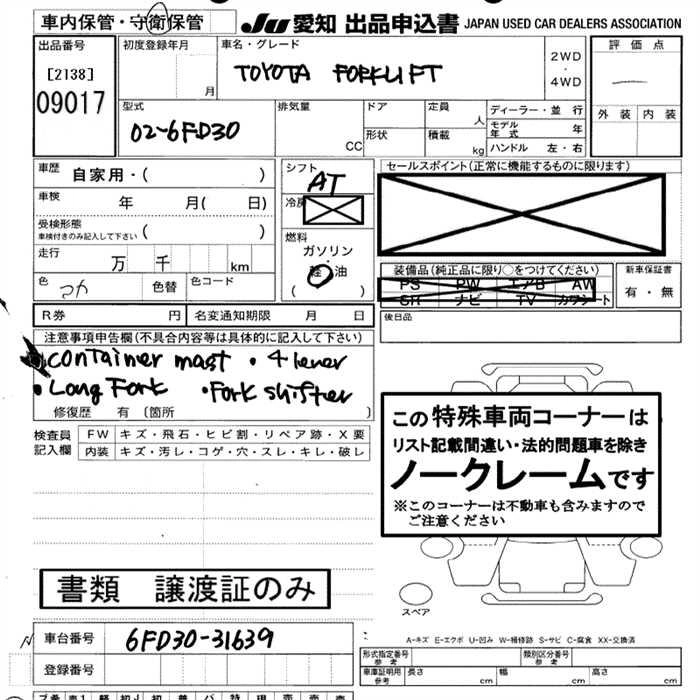 車内保管・守衛保管
JU 愛知 出品申込書 JAPAN USED CAR DEALERS ASSOCIATION
出品番号
[2138]
09017
初度登録年月
月
車名・グレード
TOYOTA FORKLIFT
2WD
・
4WD
評価点
外装 内装
型式
02-6FD30
排気量
CC
ドア
形状
定員
人
積載
kg
ディーラー・並行
モデル年式 年
ハンドル 左・右
車歴
自家用・( )
車検
年 月( 日)
受検形態
車検付きのみ記入して下さい
( )
走行
万 千 km
色
色替
色コード
シフト
AT
冷房
燃料
ガソリン
・
軽・油
( )
セールスポイント(正常に機能するものに限ります)
装備品(純正品に限り○をつけてください)
PS PW エアB AW
SR ナビ TV カワシート
新車保証書
有・無
R券 円
名変通知期限 月 日
後日品
注意事項申告欄(不具合内容等は具体的に記入して下さい)
•container mast • 4 lever
•Long Fork •Fork shifter
修復歴 有 〔箇所 〕
検査員
記入欄
FW キズ・飛石・ヒビ割・リペア跡・X要
内装 キズ・汚レ・コゲ・穴・スレ・キレ・破レ
この特殊車両コーナーは
リスト記載間違い・法的問題車を除き
ノークレームです
※このコーナーは不動車も含みますので
ご注意ください
スペア
書類 譲渡証のみ
A-キズ E-エクボ U-凹み W-補修跡 S-サビ C-腐食 XX-交換済
車台番号
6FD30-31639
登録番号
型式指定番号
参考
類別区分番号
参考
車庫証明用
参考
長さ cm
幅 cm
高さ cm